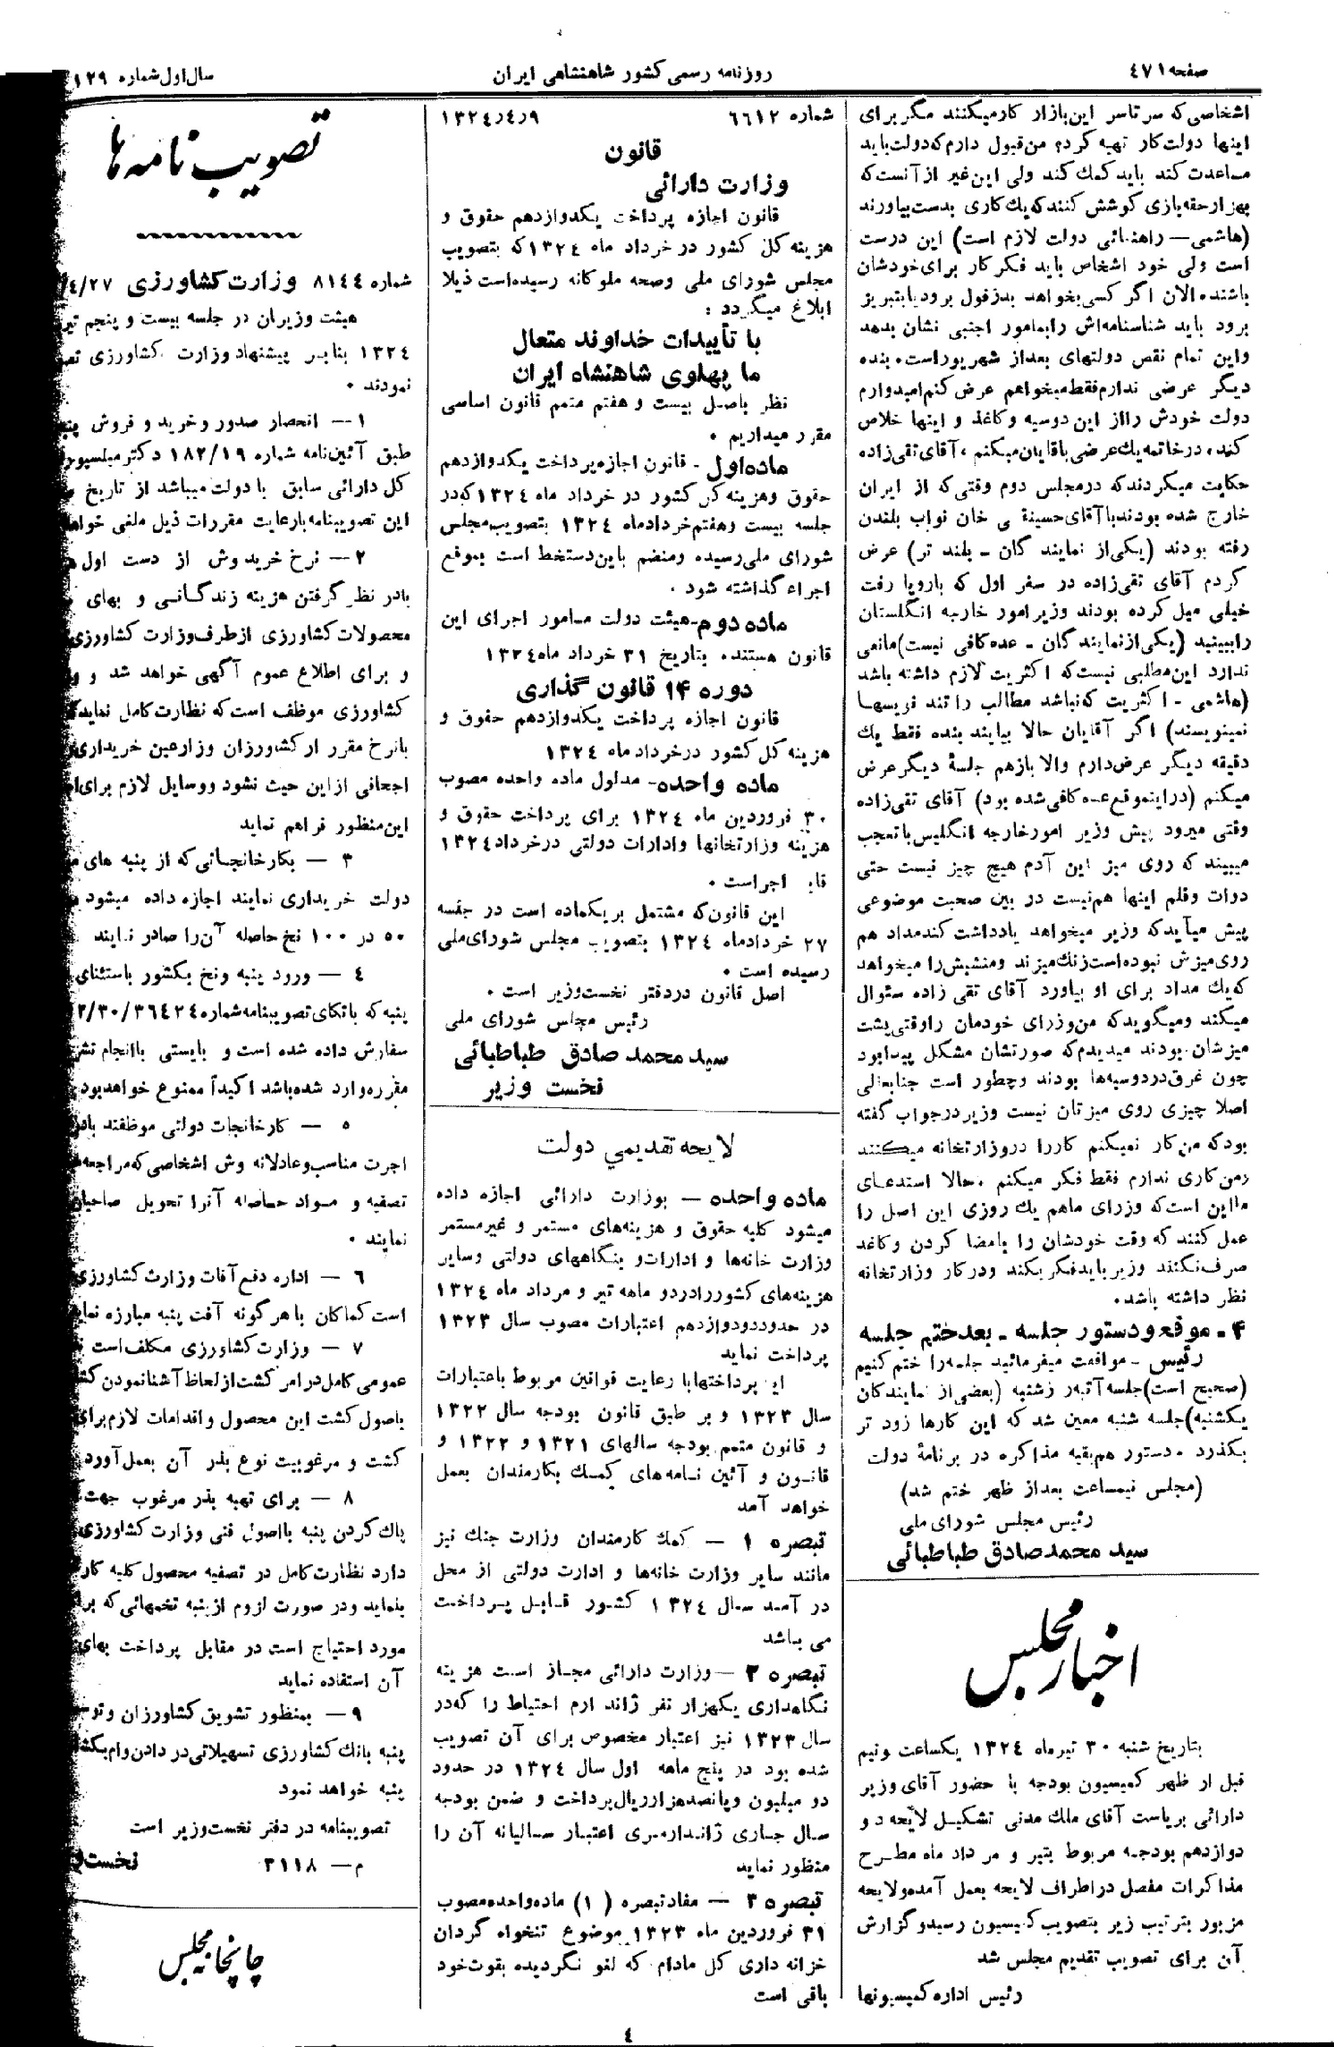 صفحه ۴۷۱
روزنامه رسمی کشور شاهنشاهی ایران
سال اول شماره ۱۲۹
اشخاصی که سرتاسر این بازار کار میکنند مگر برای
اینها دولت کار تهیه کرد؟ من قبول دارم که دولت باید
مساعدت کند باید کمک کند ولی این غیر از آنست که
بهزار حقه بازی کوشش کنند که یك کاری بدست بیاورند
(هاشمی ـ راهنمائی دولت لازم است) این درست
است ولی خود اشخاص باید فکر کار برای خودشان
باشند. الان اگر کسی بخواهد بدزفول برود یا بتبریز
برود باید شناسنامه‌اش را بمامور اجنبی نشان بدهد
و این تمام نقص دولتهای بعد از شهریور است. بنده
دیگر عرضی ندارم فقط میخواهم عرض کنم امیدوارم
دولت خودش را از این دوسیه و کاغذ و اینها خلاص
کند. در خاتمه یك عرضی با قایان میکنم، آقای تقی زاده
حکایت میکردند که در مجلس دوم وقتی که از ایران
خارج شده بودند با آقای حسینقلی خان نواب بلندن
رفته بودند (یکی از نمایندگان ـ بلند تر) عرض
کردم آقای تقی زاده در سفر اول که باروپا رفت
خیلی میل کرده بودند وزیر امور خارجه انگلستان
را ببینید (یکی از نمایندگان ـ عده کافی نیست) مانعی
ندارد این مطلبی نیست که اکثریت لازم داشته باشد
(هاشمی ـ اکثریت که نباشد مطالب را تند نویسها
نمینویسند) اگر آقایان حالا بیایند بنده فقط یك
دقیقه دیگر عرض دارم والا باز هم جلسهٔ دیگر عرض
میکنم (در اینموقع عده کافی شده بود) آقای تقی زاده
وقتی میرود پیش وزیر امور خارجه انگلیس با تعجب
میبیند که روی میز این آدم هیچ چیز نیست حتی
دوات و قلم اینها هم نیست در بین صحبت موضوعی
پیش میآید که وزیر میخواهد یادداشت کند مداد هم
روی میزش نبوده است زنك میزند و منشیش را میخواهد
که یك مداد برای او بیاورد آقای تقی زاده سئوال
میکند و میگوید که من وزرای خودمان را وقتی پشت
میزشان بودند میدیدم که صورتشان مشکل پیدا بود
چون غرق در دوسیه‌ها بودند و چطور است جنابعالی
اصلا چیزی روی میزتان نیست وزیر در جواب گفته
بود که من کار نمیکنم کار را در وزارتخانه میکنند
و من کاری ندارم فقط فکر میکنم. حالا استدعای
ما این است که وزرای ما هم یك روزی این اصل را
عمل کنند که وقت خودشان را بامضا کردن و کاغذ
صرف نکنند وزیر باید فکر بکند و در کار وزارتخانه
نظر داشته باشد.
۴ـ موقع و دستور جلسه ـ بعد ختم جلسه
رئیس ـ موافقت میفرمائید جلسه را ختم کنیم
(صحیح است) جلسه آتیه روز شنبه (بعضی از نمایندگان
یکشنبه) جلسه شنبه معین شد که این کارها زود تر
بگذرد. دستور هم بقیه مذاکره در برنامهٔ دولت
(مجلس نیمساعت بعد از ظهر ختم شد)
رئیس مجلس شورای ملی
سید محمد صادق طباطبائی
اخبار مجلس
بتاریخ شنبه ۳۰ تیر ماه ۱۳۲۴ یکساعت و نیم
قبل از ظهر کمیسیون بودجه با حضور آقای وزیر
دارائی بریاست آقای ملك مدنی تشکیل لایحه دو
دوازدهم بودجه مربوط بتیر و مرداد ماه مطرح
مذاکرات مفصل در اطراف لایحه بعمل آمده ولایحه
مزبور بترتیب زیر بتصویب کمیسیون رسید و گزارش
آن برای تصویب تقدیم مجلس شد
رئیس اداره کمیسیونها
شماره ۶۶۱۲ ۱۳۲۴ر۴ر۹
قانون
وزارت دارائی
قانون اجازه پرداخت یکدوازدهم حقوق و
هزینه کل کشور در خرداد ماه ۱۳۲۴ که بتصویب
مجلس شورای ملی و صحه ملوکانه رسیده است ذیلا
ابلاغ میگردد :
با تأییدات خداوند متعال
ما پهلوی شاهنشاه ایران
نظر باصل بیست و هفتم متمم قانون اساسی
مقرر میداریم.
ماده اول ـ قانون اجازه پرداخت یکدوازدهم
حقوق و هزینه کل کشور در خرداد ماه ۱۳۲۴ که در
جلسه بیست و هفتم خرداد ماه ۱۳۲۴ بتصویب مجلس
شورای ملی رسیده و منضم باین دستخط است بموقع
اجراء گذاشته شود.
ماده دوم ـ هیئت دولت مامور اجرای این
قانون هستند. بتاریخ ۳۱ خرداد ماه ۱۳۲۴
دوره ۱۴ قانون گذاری
قانون اجازه پرداخت یکدوازدهم حقوق و
هزینه کل کشور در خرداد ماه ۱۳۲۴
ماده واحده ـ مدلول ماده واحده مصوب
۳۰ فروردین ماه ۱۳۲۴ برای پرداخت حقوق و
هزینه وزارتخانها و ادارات دولتی در خرداد ۱۳۲۴
قابل اجراست.
این قانون که مشتمل بر یکماده است در جلسه
۲۷ خرداد ماه ۱۳۲۴ بتصویب مجلس شورای ملی
رسیده است.
اصل قانون در دفتر نخست وزیر است.
رئیس مجلس شورای ملی
سید محمد صادق طباطبائی
نخست وزیر
لایحه تقدیمی دولت
ماده واحده ـ بوزارت دارائی اجازه داده
میشود کلیه حقوق و هزینه‌های مستمر و غیر مستمر
وزارت خانه‌ها و ادارات و بنگاههای دولتی و سایر
هزینه‌های کشور را در دو ماهه تیر و مرداد ماه ۱۳۲۴
در حدود دو دوازدهم اعتبارات مصوب سال ۱۳۲۳
پرداخت نماید
این پرداختها با رعایت قوانین مربوط باعتبارات
سال ۱۳۲۳ و بر طبق قانون بودجه سال ۱۳۲۲
و قانون متمم بودجه سالهای ۱۳۲۱ و ۱۳۲۲ و
قانون و آئین نامه‌های کمك بکارمندان بعمل
خواهد آمد
تبصره ۱ ـ کمك کارمندان وزارت جنك نیز
مانند سایر وزارت خانه‌ها و ادارت دولتی از محل
در آمد سال ۱۳۲۴ کشور قابل پرداخت
می باشد
تبصره ۲ ـ وزارت دارائی مجاز است هزینه
نگاهداری یکهزار نفر ژاندارم احتیاط را که در
سال ۱۳۲۳ نیز اعتبار مخصوص برای آن تصویب
شده بود در پنج ماهه اول سال ۱۳۲۴ در حدود
دو میلیون و پانصد هزار ریال پرداخت و ضمن بودجه
سال جاری ژاندارمری اعتبار سالیانه آن را
منظور نماید
تبصره ۳ ـ مفاد تبصره (۱) ماده واحده مصوب
۳۱ فروردین ماه ۱۳۲۳ موضوع تنخواه گردان
خزانه داری کل مادام که لغو نگردیده بقوت خود
باقی است
تصویب نامه ها
شماره ۸۱۴۴ وزارت کشاورزی ۴/۲۷/
هیئت وزیران در جلسه بیست و پنجم تیر
۱۳۲۴ بنابر پیشنهاد وزارت کشاورزی
نمودند.
۱ ـ انحصار صدور و خرید و فروش پنبه
طبق آئین نامه شماره ۱۸۲/۱۹ دکتر میلسپو
کل دارائی سابق با دولت میباشد از تاریخ
این تصویبنامه با رعایت مقررات ذیل ملغی
۲ ـ نرخ خرید وش از دست اول
با در نظر گرفتن هزینه زندگانی و بهای
محصولات کشاورزی از طرف وزارت کشاورزی
و برای اطلاع عموم آگهی خواهد شد و
کشاورزی موظف است که نظارت کامل نماید
بانرخ مقرر از کشاورزان و زارعین خریداری
اجحافی از این حیث نشود و وسایل لازم برای
این منظور فراهم نماید
۳ ـ بکارخانجاتی که از پنبه های
دولت خریداری نمایند اجازه داده میشود
۵۰ در ۱۰۰ نخ حاصله آن را صادر نمایند
۴ ـ ورود پنبه و نخ بکشور باستثنای
پنبه که باتکای تصویبنامه شماره ۳۶۴۲۴/۳۰/۳
سفارش داده شده است و بایستی با انجام
مقرره وارد شده باشد اکیداً ممنوع خواهد بود
۵ ـ کارخانجات دولتی موظفند
اجرت مناسب و عادلانه وش اشخاصی که مراجعه
تصفیه و مواد حاصله آنرا تحویل صاحبان
نمایند.
۶ ـ اداره دفع آفات وزارت کشاورزی
است کماکان با هر گونه آفت پنبه مبارزه
۷ ـ وزارت کشاورزی مکلف است
عمومی کامل در امر کشت از لحاظ آشنا نمودن
باصول کشت این محصول و اقدامات لازم برای
کشت و مرغوبیت نوع بذر آن بعمل آورد
۸ ـ برای تهیه بذر مرغوب جهت
پاك کردن پنبه با اصول فنی وزارت کشاورزی
دارد نظارت کامل در تصفیه محصول کلیه
بنماید و در صورت لزوم از پنبه تخمهائی که
مورد احتیاج است در مقابل پرداخت بهای
آن استفاده نماید
۹ ـ بمنظور تشویق کشاورزان و
پنبه بانك کشاورزی تسهیلاتی در دادن وام
پنبه خواهد نمود
تصویبنامه در دفتر نخست وزیر است
م ـ ۳۱۱۸ نخست
چاپخانه مجلس
۴